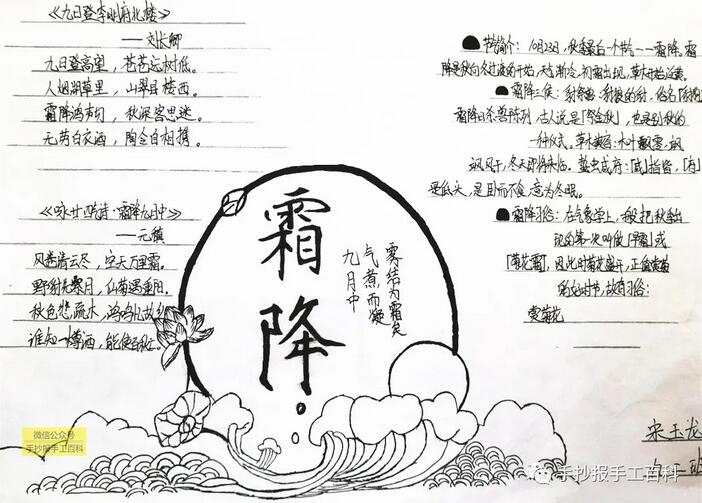 《九日登李明府北楼》
——刘长卿
九日登高望，苍苍远树低。
人烟湖草里，山翠县楼西。
霜降鸿声切，秋深客思迷。
无劳白衣酒，陶令自相携。
《咏廿四气诗·霜降九月中》
——元稹
风卷清云尽，空天万里霜。
野豺先祭月，仙菊遇重阳。
秋色悲疏木，鸿鸣忆故乡。
谁知一樽酒，能使百秋亡。
霜降
九月中
气肃而凝
露结为霜矣
节气简介：10月23日，秋季最后一个节气——霜降。霜
降是秋向冬过渡的开始，天气渐冷，初霜出现，草木开始泛黄。
霜降三候：豺祭兽：豺狼的豺，俗名「豺狗」
霜降日杀兽陈列，古人说是「祭金秋」，也是别秋的
一种仪式。草木黄落：木叶飘零，飒
飒风干，冬天即将来临。蛰虫咸俯：「咸」指皆，「俯」
是低头，是卧而不食，意为冬眠。
霜降习俗：在气象学上，一般把秋季出
现的第一次叫做「早霜」或
「菊花霜」，因此时菊花盛开，正值赏菊
的好时节，故有习俗：
赏菊花
宋玉龙
班
微信公众号
手抄报手工百科
手抄报手工百科